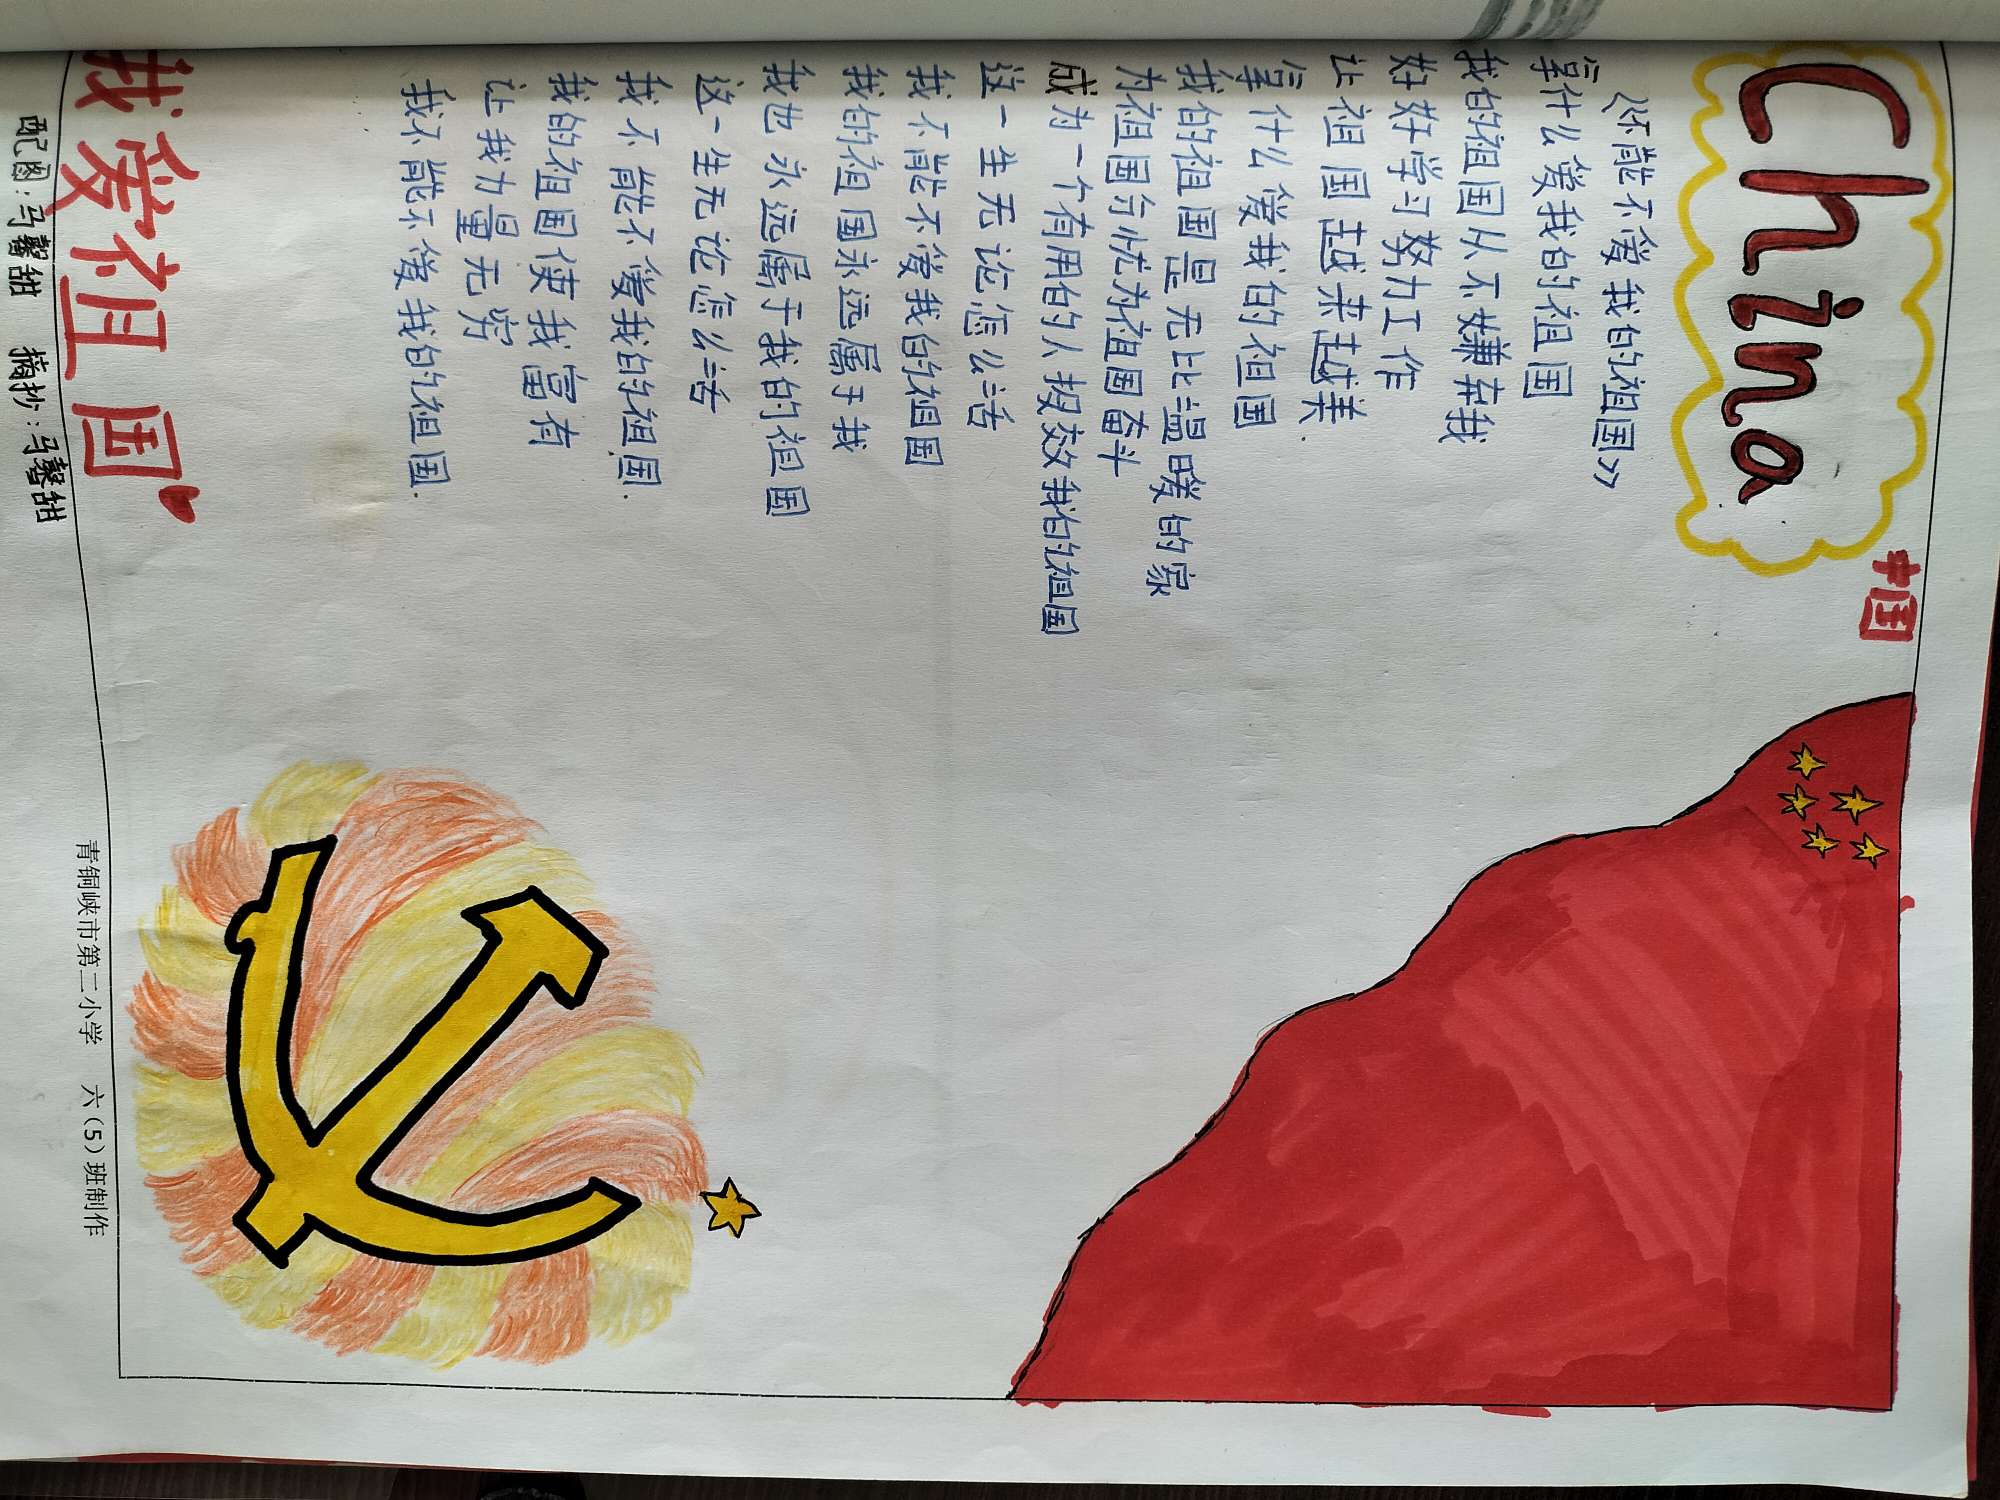 China
中国
《怀能不爱我的祖国》
拿什么爱我的祖国
我的祖国从不嫌弃我
好好学习努力工作
让祖国越来越美.
拿什么爱我的祖国
我的祖国是无比温暖的家
为祖国分忧为祖国奋斗
成为一个有用的人报效我的祖国
这一生无论怎么活
我不能不爱我的祖国
我的祖国永远属于我
我也永远属于我的祖国
这一生无论怎么活
我不能不爱我的祖国.
我的祖国使我富有
让我力量无穷
我不能不爱我的祖国.
我爱祖国
配图:马馨甜 摘抄:马馨甜
青铜峡市第二小学 六(5)班制作